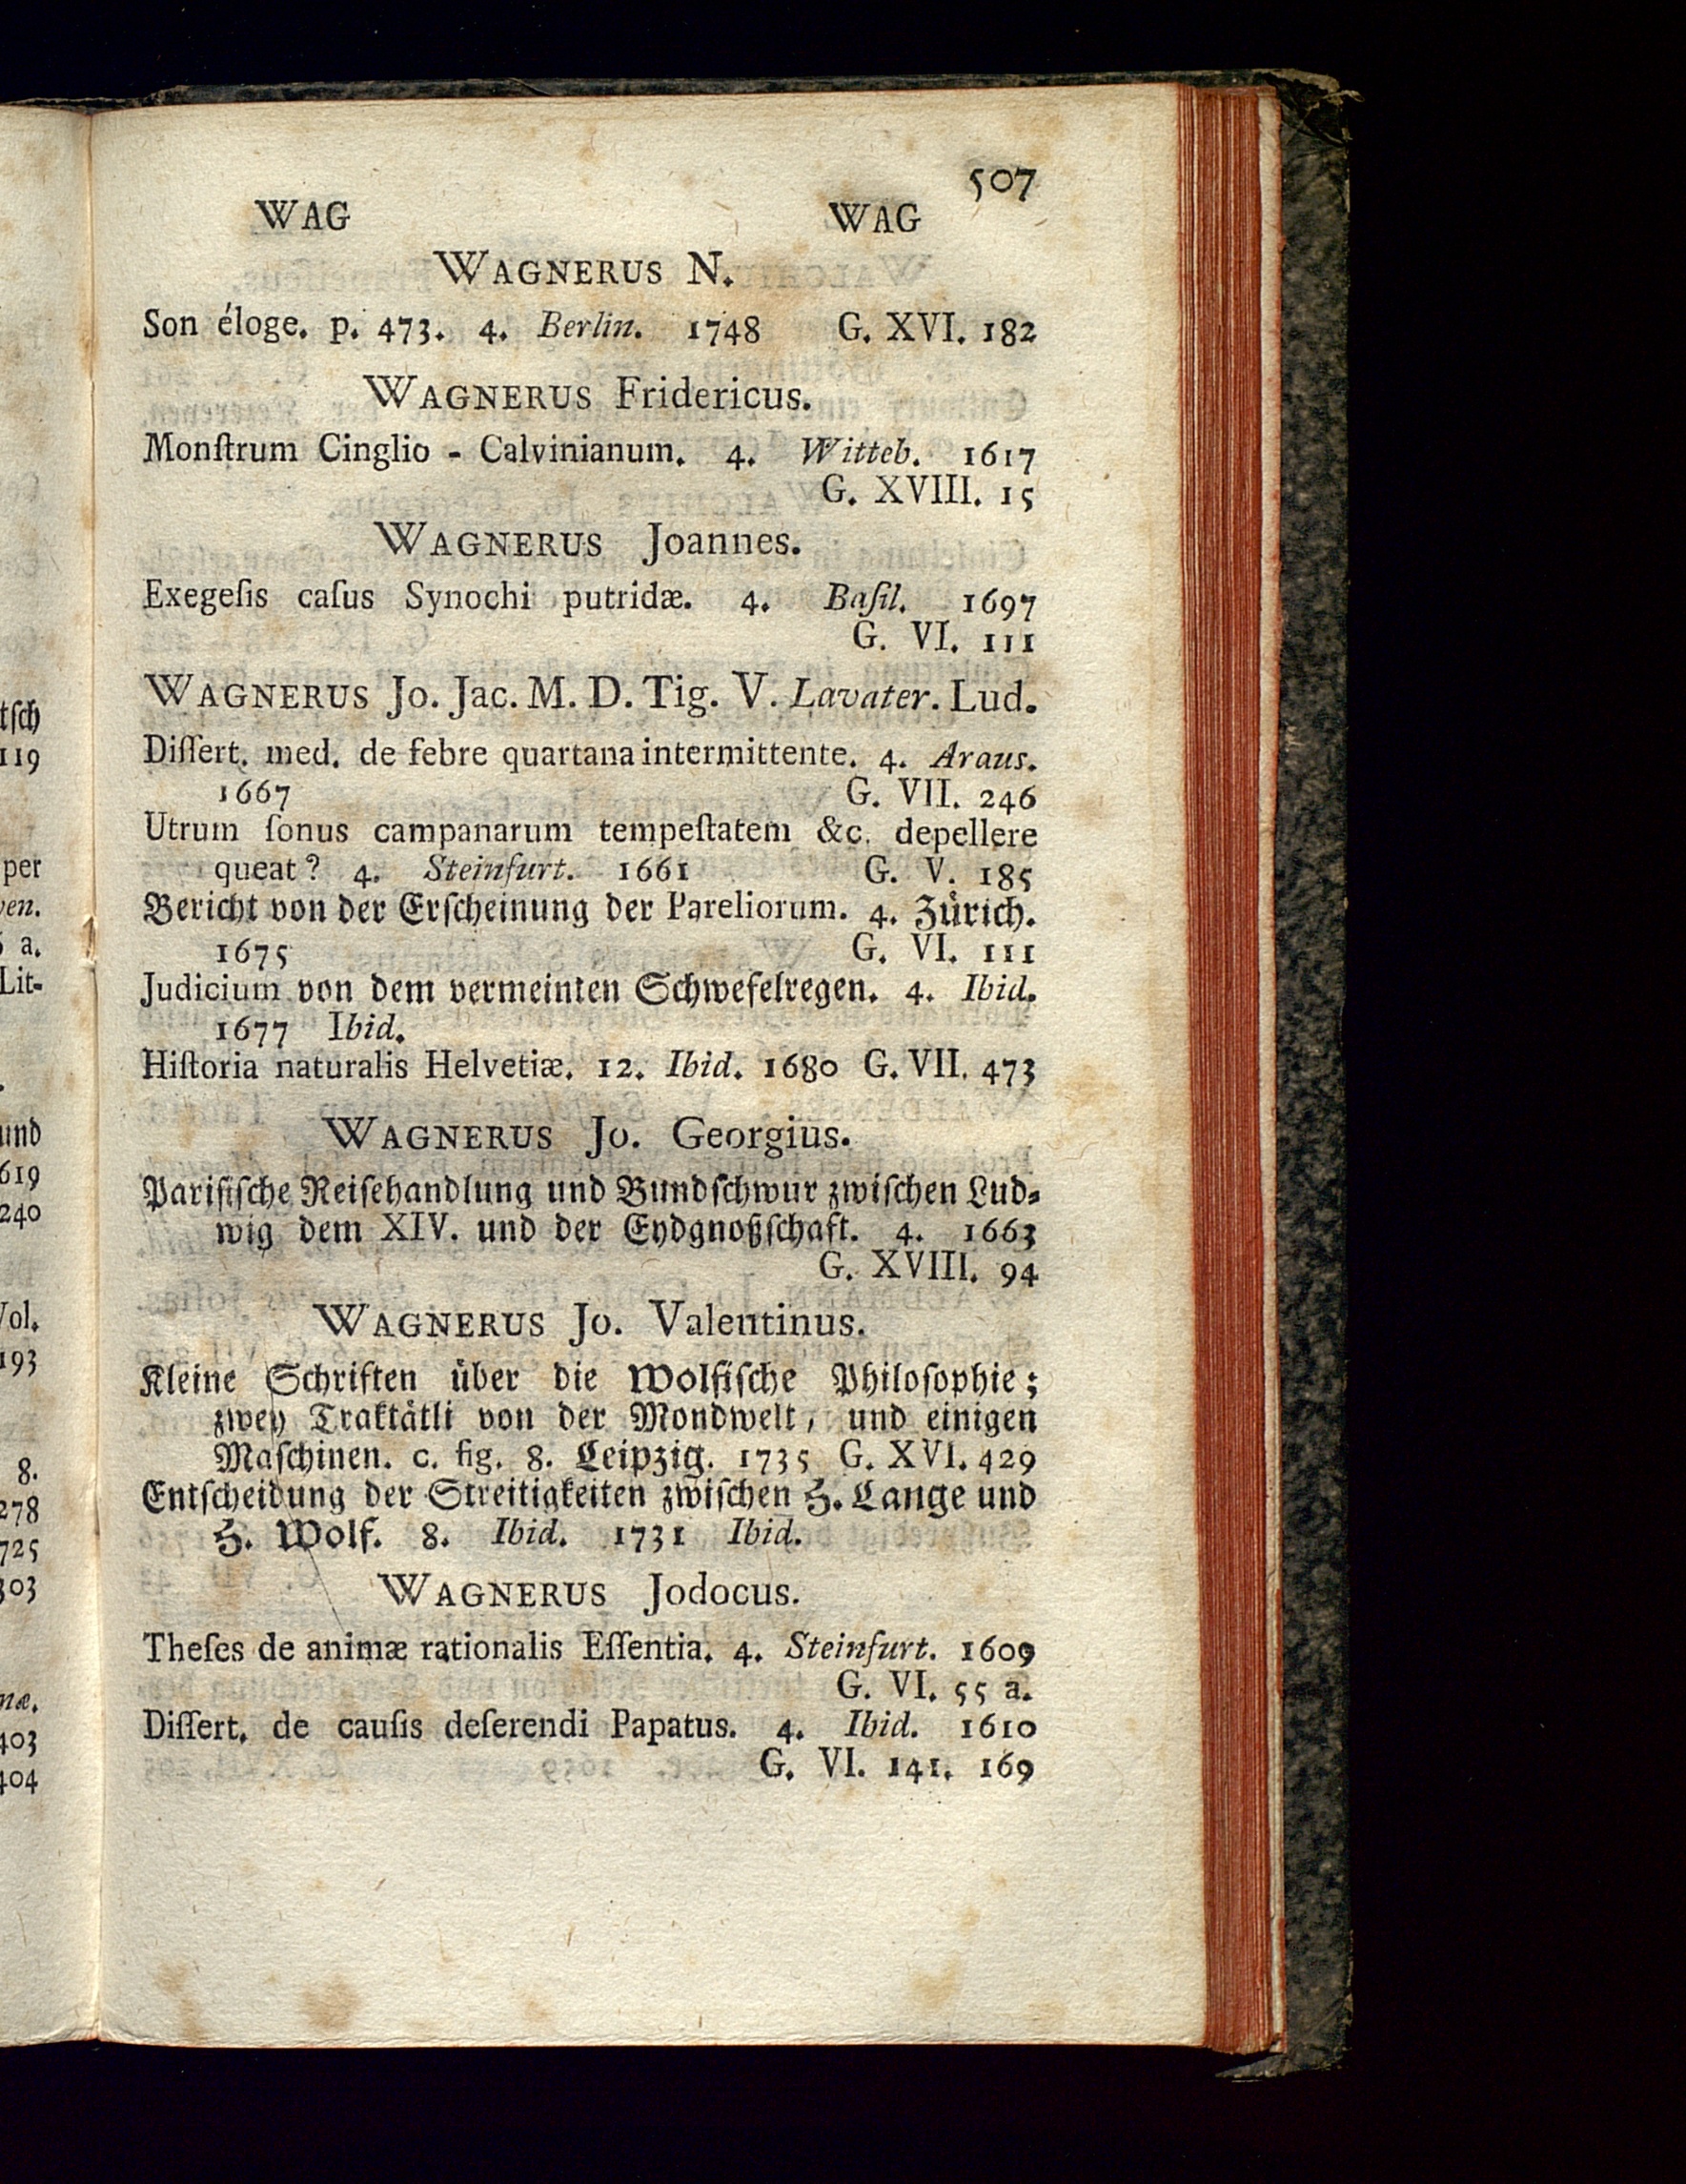 507
WAG WAG
WAGNERUS N.
Son éloge. p. 473. 4. Berlin. 1748 G. XVI. 182
WAGNERUS Fridericus.
Monſtrum Cinglio - Calvinianum. 4. Witteb. 1617
G. XVIII. 15
WAGNERUS Joannes.
Exegeſis caſus Synochi putridæ. 4. Baſil. 1697
G. VI. 111
WAGNERUS Jo. Jac. M. D. Tig. V. Lavater. Lud.
Diſſert. med. de febre quartana intermittente. 4. Araus.
1667 G. VII. 246
Utrum ſonus campanarum tempeſtatem &c. depellere
queat? 4. Steinfurt. 1661 G. V. 185
Bericht von der Erſcheinung der Pareliorum. 4. Zürich.
1675 G. VI. 111
Judicium von dem vermeinten Schwefelregen. 4. Ibid.
1677 Ibid.
Hiſtoria naturalis Helvetiæ. 12. Ibid. 1680 G. VII. 473
WAGNERUS Jo. Georgius.
Pariſiſche Reiſehandlung und Bundſchwur zwiſchen Lud-
wig dem XIV. und der Eydgnoßſchaft. 4. 1663
G. XVIII. 94
WAGNERUS Jo. Valentinus.
Kleine Schriften über die Wolfiſche Philoſophie;
zwey Traktätli von der Mondwelt, und einigen
Maſchinen. c. fig. 8. Leipzig. 1735 G. XVI. 429
Entſcheidung der Streitigkeiten zwiſchen H. Lange und
H. Wolf. 8. Ibid. 1731 Ibid.
WAGNERUS Jodocus.
Theſes de animæ rationalis Eſſentia. 4. Steinfurt. 1609
G. VI. 55 a.
Diſſert. de cauſis deſerendi Papatus. 4. Ibid. 1610
G. VI. 141. 169